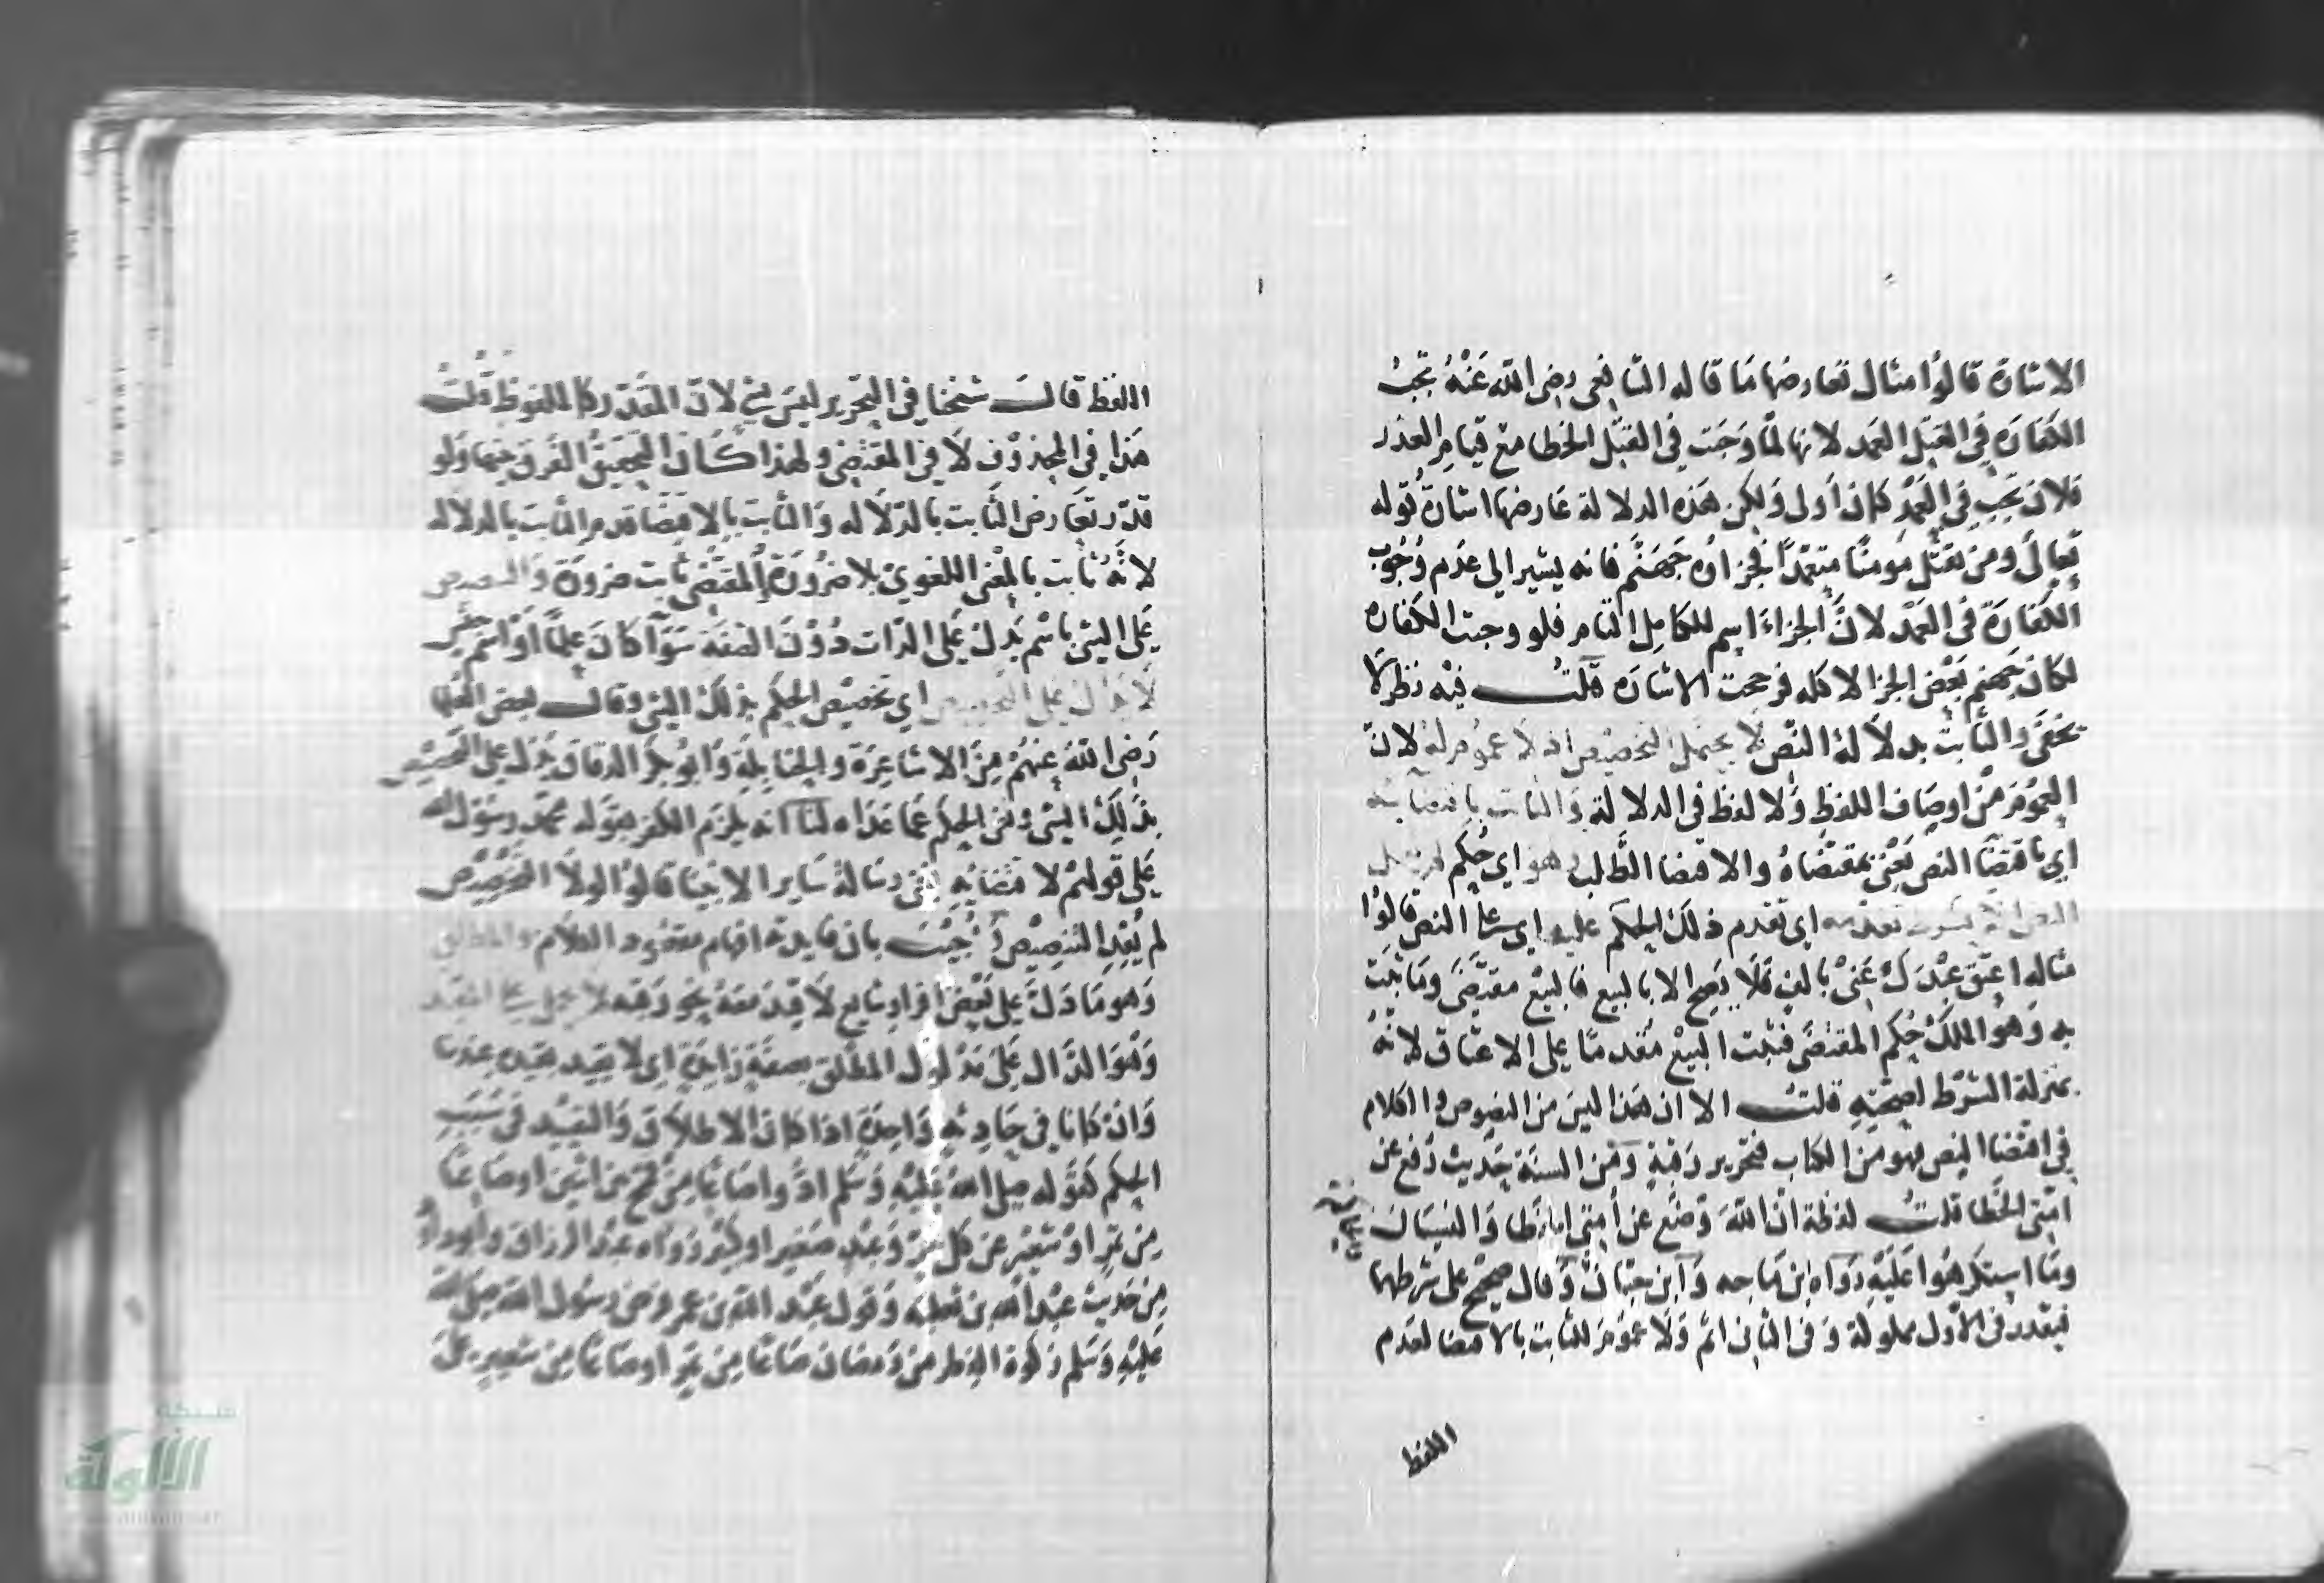 الاشارة قالوا مثال تعارضها ما قاله الشافعى رضى الله عنه تجب
الكفارة فى القتل العمد لانها لما وجبت فى القتل الخطا مع قيام العذر
فلان تجب فى العمد كان اولى ولكن هذه الدلالة عارضها اشارة قوله
تعالى ومن يقتل مومنا متعمدا فجزاوه جهنم فانه يشير الى عدم وجوب
الكفارة فى العمد لان الجزاء اسم للكامل التام فلو وجبت الكفارة
لكان جهنم بعض الجزا لا كله فرجحت الاشارة قلت فيه نظر لا
يخفى والثابت بدلالة النص لا يحتمل التخصيص اذ لا عموم له لان
العموم من اوصاف اللفظ ولا لفظ فى الدلالة والثابت باقتضائه
اى باقتضا النص يعنى بمقتضاه والاقتضا الطلب هو اى حكم لم يعمل
النص الا بشرط تقدمه اى تقدم ذلك الحكم عليه اى على النص قالوا
مثاله اعتق عبدك عنى بالف فلا يصح الا بالبيع فالبيع مقتضى وما ثبت
به وهو الملك حكم المقتضى فثبت البيع مقدما على الاعتاق لانه
بمنزلة الشرط لصحته قلت الا ان هذا ليس من النصوص والكلام
فى اقتضا النص فهو من الكتاب فتحرير رقبة ومن السنة حديث رفع عن
امتى الخطا قلت لفظة ان الله وضع عن امتى الخطا والنسيان
وما استكرهوا عليه رواه ابن ماجه وابن حبان وقال صحيح على شرطهما
فيقدر فى الاول مملوكة وفى الثانى اثم ولا عموم للثابت بالاقتضا لعدم
اللفظ
اللفظ قال شيخنا فى التحرير ليس بشى لان المقدر كالملفوظ قلت
هذا فى المحذوف لا فى المقتضى ولهذا كان التحقيق الفرق بينهما ولو
قدر تعارض الثابت بالدلاله والثابت بالاقتضا قدم الثابت بالدلاله
لانه ثابت بالمعنى اللغوى بلا ضرورة والمقتضى ثابت ضرورة والتنصيص
على الشى باسم يدل على الذات دون الصفة سوآ كان علما او اسم جنس
لا يدل على التخصيص اى تخصيص الحكم بذلك الشى وقال بعض العلما
رضى الله عنهم من الاشاعرة والحنابلة وابو بكر الدقاق يدل على التخصيص
بذلك الشى ونفى الحكم عما عداه لنا انه يلزم الكفر بقوله محمد رسول الله
على قولهم لاقتضائه نفى رسالة ساير الانبيا قالوا لولا التخصيص
لم يفد التنصيص اجيب بان فايدته افهام مقصود الكلام والمطلق
وهو ما دل على بعض افراد شايع لا قيد معه نحو رقبه لا يحمل على المقيد
وهو الدال على مدلول المطلق بصفة زايدة اى لا يقيد بقيده عندنا
وان كانا فى حادثة واحدة اذا كان الاطلاق والتقييد فى سبب
الحكم كقوله صلى الله عليه وسلم ادوا صاعا من قمح عن اثنين او صاعا
من تمر او شعير عن كل حر وعبد صغير او كبير رواه عبد الرزاق وابو داود
من حديث عبد الله بن ثعلبه وقول عبد الله بن عمر فرض رسول الله صلى الله
عليه وسلم زكوة الفطر من رمضان صاعا من تمر او صاعا من شعير على